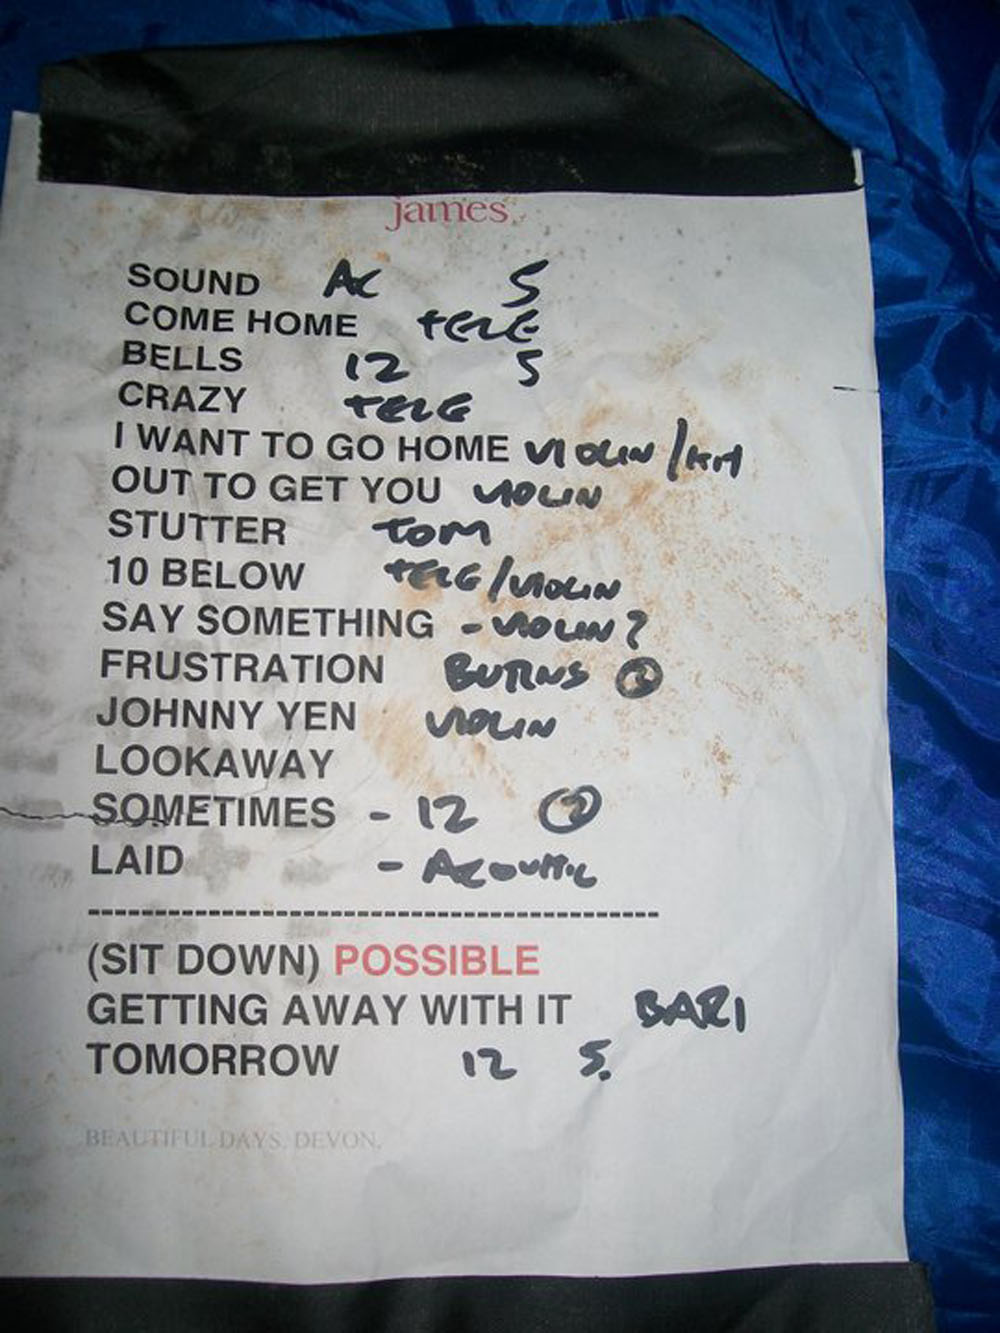 james
SOUND AC 5
COME HOME TELE
BELLS 12 5
CRAZY TELE
I WANT TO GO HOME VIOLIN /
OUT TO GET YOU VIOLIN
STUTTER TOM
10 BELOW TELE/VIOLIN
SAY SOMETHING - VIOLIN?
FRUSTRATION BURNS
JOHNNY YEN VIOLIN
LOOKAWAY
SOMETIMES - 12
LAID - ACOUSTIC
--------------------------------------------
(SIT DOWN) POSSIBLE
GETTING AWAY WITH IT BARI
TOMORROW 12 5.
BEAUTIFUL DAYS. DEVON.